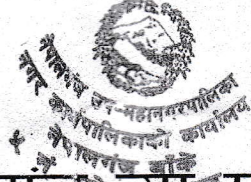 नेपालगंज उप-महानगरपालिका
नगर कार्यपालिकाको कार्यालय
नेपालगंज बाँके